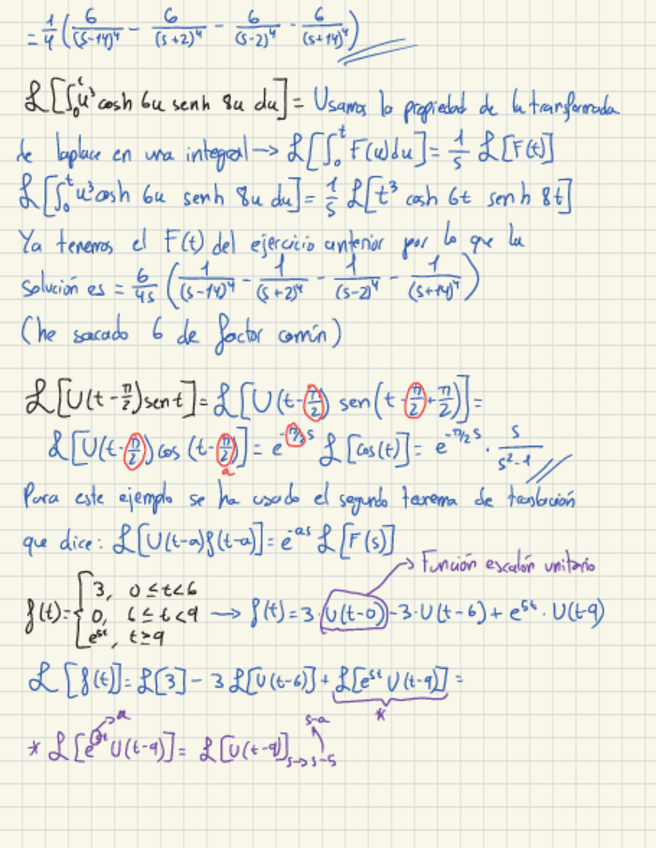 = 1/4 ( 6/(s-14)⁴ - 6/(s+2)⁴ - 6/(s-2)⁴ - 6/(s+14)⁴ )
ℒ[∫₀ᵗ u³ cosh 6u senh 8u du] = Usamos la propiedad de la transformada
de laplace en una integral → ℒ[∫₀ᵗ F(u)du] = 1/s ℒ[F(t)]
ℒ[∫₀ᵗ u³ cosh 6u senh 8u du] = 1/s ℒ[t³ cosh 6t senh 8t]
Ya tenemos el F(t) del ejercicio anterior por lo que la
solución es = 6/4s ( 1/(s-14)⁴ - 1/(s+2)⁴ - 1/(s-2)⁴ - 1/(s+14)⁴ )
(he sacado 6 de factor común)
ℒ[U(t-π/2)sent] = ℒ[U(t-π/2) sen(t-π/2+π/2)] =
ℒ[U(t-π/2)cos(t-π/2)] = e^-π/2 s ℒ[cos(t)] = e^-π/2 s · s/(s²-1)
a
Para este ejemplo se ha usado el segundo teorema de translación
que dice: ℒ[U(t-a)f(t-a)] = e^-as ℒ[F(s)]
Función escalón unitario
f(t) = { 3, 0≤t<6
0, 6≤t<9 → f(t) = 3·U(t-0) - 3·U(t-6) + e^5t · U(t-9)
e^5t, t≥9
ℒ[f(t)] = ℒ[3] - 3ℒ[U(t-6)] + ℒ[e^5t U(t-9)] =
*
a s-a
* ℒ[e^5t U(t-9)] = ℒ[U(t-9)] s→s-5